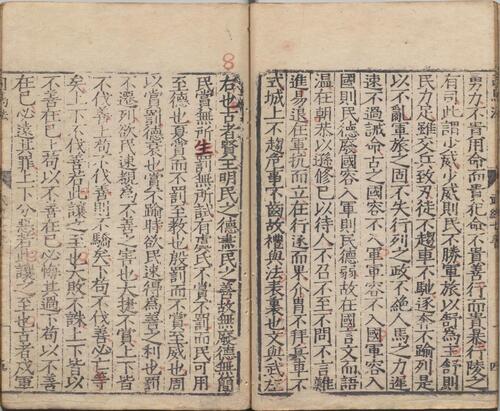 勇力不貴用命而貴犯命不貴善行而貴暴行陵之
有司此謂少威少威則民不勝軍旅以舒爲主舒則
民力足雖交兵致刃徒不趨車不馳逐奔不踰列是
以不亂軍旅之固不失行列之政不絶人馬之力遲
速不過誡命古之國容不入軍軍容不入國軍容入
國則民德廢國容入軍則民德弱故在國言文而語
温在朝恭以遜修己以待人不召不至不問不言難
進易退在軍抗而立在行遂而果介胄不拜兵車不
式城上不趨危事不齒故禮與法表裏也文與武左
8
右也古者賢王明民之德盡民之善故無廢德無簡
民賞無所生罰無所試有虞氏不賞不罰而民可用
至德也夏賞而不罰至教也殷罰而不賞至威也周
以賞罰德衰也賞不踰時欲民速得爲善之利也罰
不遷列欲民速覩爲不善之害也大捷不賞上下皆
不伐善上苟不伐善則不驕矣下苟不伐善必亡等
矣上下不伐善若此讓之至也大敗不誅上下皆以
不善在已上苟以不善在已必悔其過下苟以不善
在已必遠其罪上下分惡若此讓之至也古者戍軍